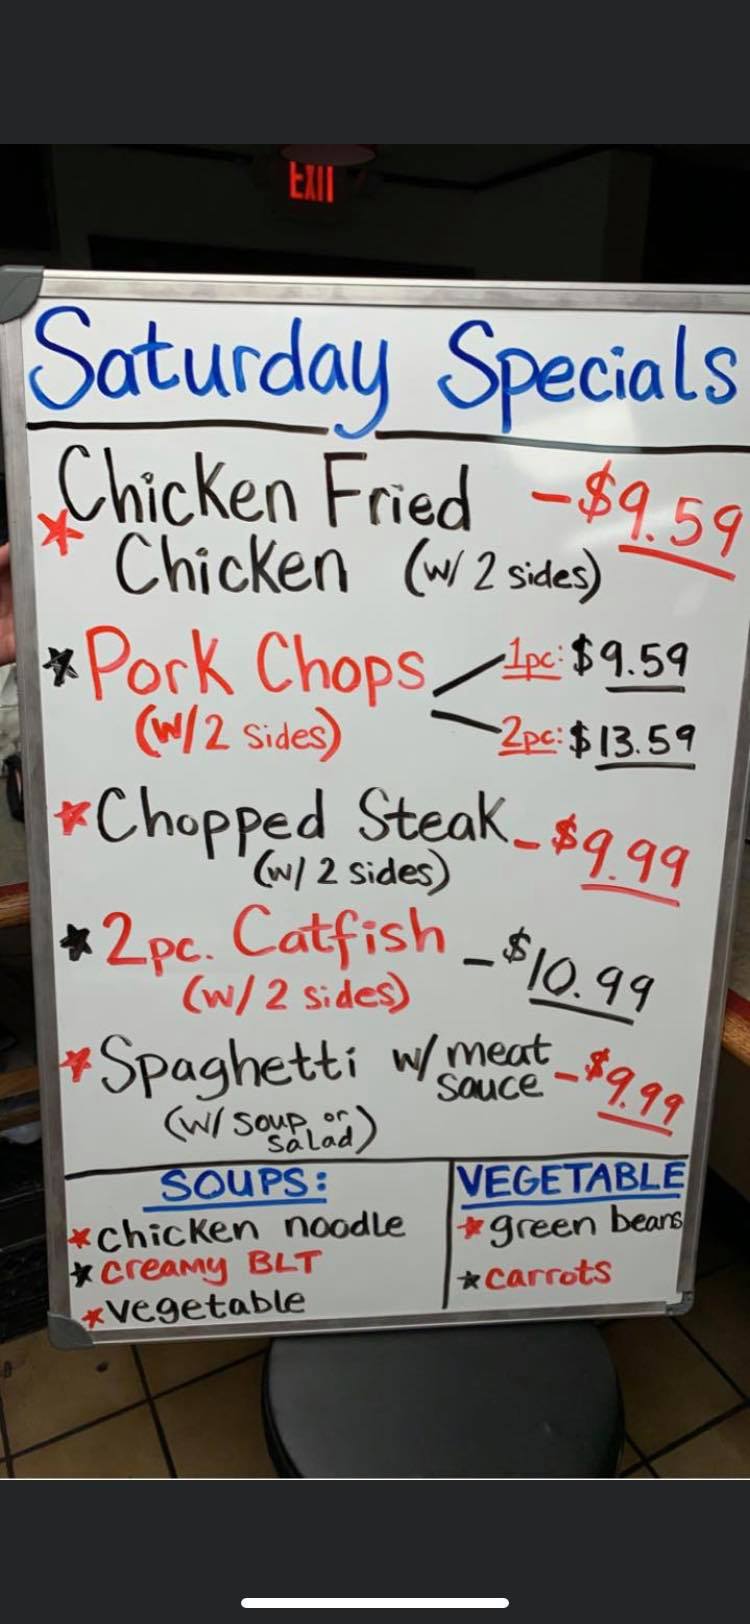 EXIT
Saturday Specials
Chicken Fried - $9.59
Chicken (w/ 2 sides)
Pork Chops
1pc: $9.59
(w/2 sides)
2pc: $13.59
Chopped Steak - $9.99
(w/ 2 sides)
2pc. Catfish - $10.99
(w/ 2 sides)
Spaghetti w/ meat sauce - $9.99
(w/ soup or salad)
SOUPS:
chicken noodle
creamy BLT
vegetable
VEGETABLE
green beans
carrots